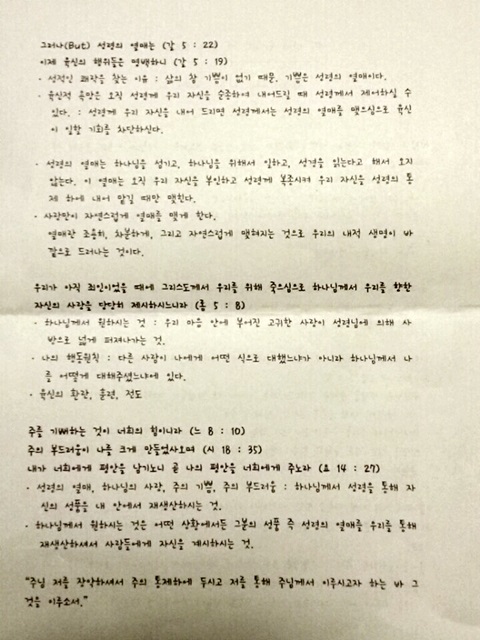 그러나(But) 성령의 열매는 (갈 5 : 22)
이제 육신의 행위들은 명백하니 (갈 5 : 19)
· 성적인 쾌락을 찾는 이유 : 삶의 참 기쁨이 없기 때문, 기쁨은 성령의 열매이다.
· 육신적 욕망은 오직 성령께 우리 자신을 순종하여 내어드릴 때 성령께서 제어하실 수
있다. : 성령께 우리 자신을 내어 드리면 성령께서는 성령의 열매를 맺으심으로 육신
이 일할 기회를 차단하신다.
· 성령의 열매는 하나님을 섬기고, 하나님을 위해서 일하고, 성경을 읽는다고 해서 오지
않는다. 이 열매는 오직 우리 자신을 부인하고 성령께 복종시켜 우리 자신을 성령의 통
제 하에 내어 맡길 때만 맺힌다.
· 사랑만이 자연스럽게 열매를 맺게 한다.
열매란 조용히, 차분하게, 그리고 자연스럽게 맺혀지는 것으로 우리의 내적 생명이 바
깥으로 드러나는 것이다.
우리가 아직 죄인이었을 때에 그리스도께서 우리를 위해 죽으심으로 하나님께서 우리를 향한
자신의 사랑을 당당히 제시하시느니라 (롬 5 : 8)
· 하나님께서 원하시는 것 : 우리 마음 안에 부어진 고귀한 사랑이 성령님에 의해 사
방으로 넓게 퍼져나가는 것.
· 나의 행동원칙 : 다른 사람이 나에게 어떤 식으로 대했느냐가 아니라 하나님께서 나
를 어떻게 대해주셨느냐에 있다.
· 육신의 환란, 훈련, 전도
주를 기뻐하는 것이 너희의 힘이니라 (느 8 : 10)
주의 부드러움이 나를 크게 만들었사오며 (시 18 : 35)
내가 너희에게 평안을 남기노니 곧 나의 평안을 너희에게 주노라 (요 14 : 27)
· 성령의 열매, 하나님의 사랑, 주의 기쁨, 주의 부드러움 : 하나님께서 성령을 통해 자
신의 성품을 내 안에서 재생산하시는 것.
· 하나님께서 원하시는 것은 어떤 상황에서든 그분의 성품 즉 성령의 열매를 우리를 통해
재생산하셔서 사람들에게 자신을 계시하시는 것.
"주님 저를 장악하셔서 주의 통제하에 두시고 저를 통해 주님께서 이루시고자 하는 바 그
것을 이루소서."